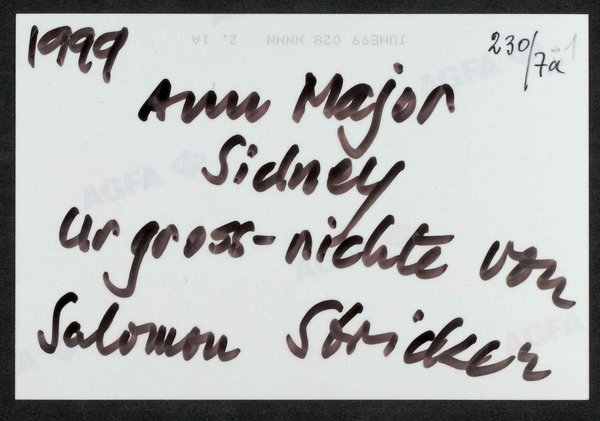 1999
230/7a
-1
Ann Major
Sidney
Urgross-nichte von
Salomon Stricker
JUNE99 028 NNNN 2. 1A
AGFA
AGFA
AGFA